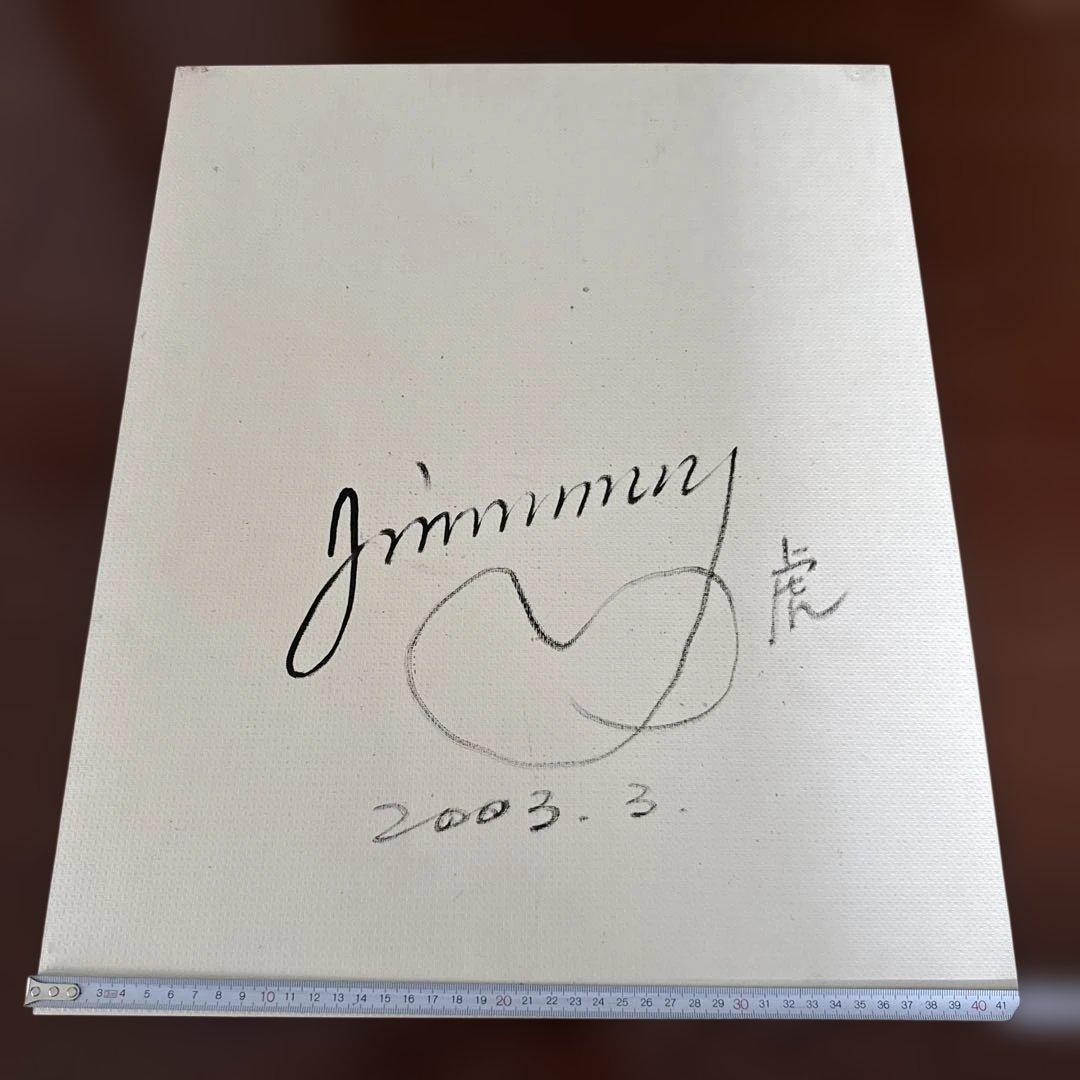 Jimmmy
虎
2003.3.
3 4 5 6 7 8 9 10 11 12 13 14 15 16 17 18 19 20 21 22 23 24 25 26 27 28 29 30 31 32 33 34 35 36 37 38 39 40 41